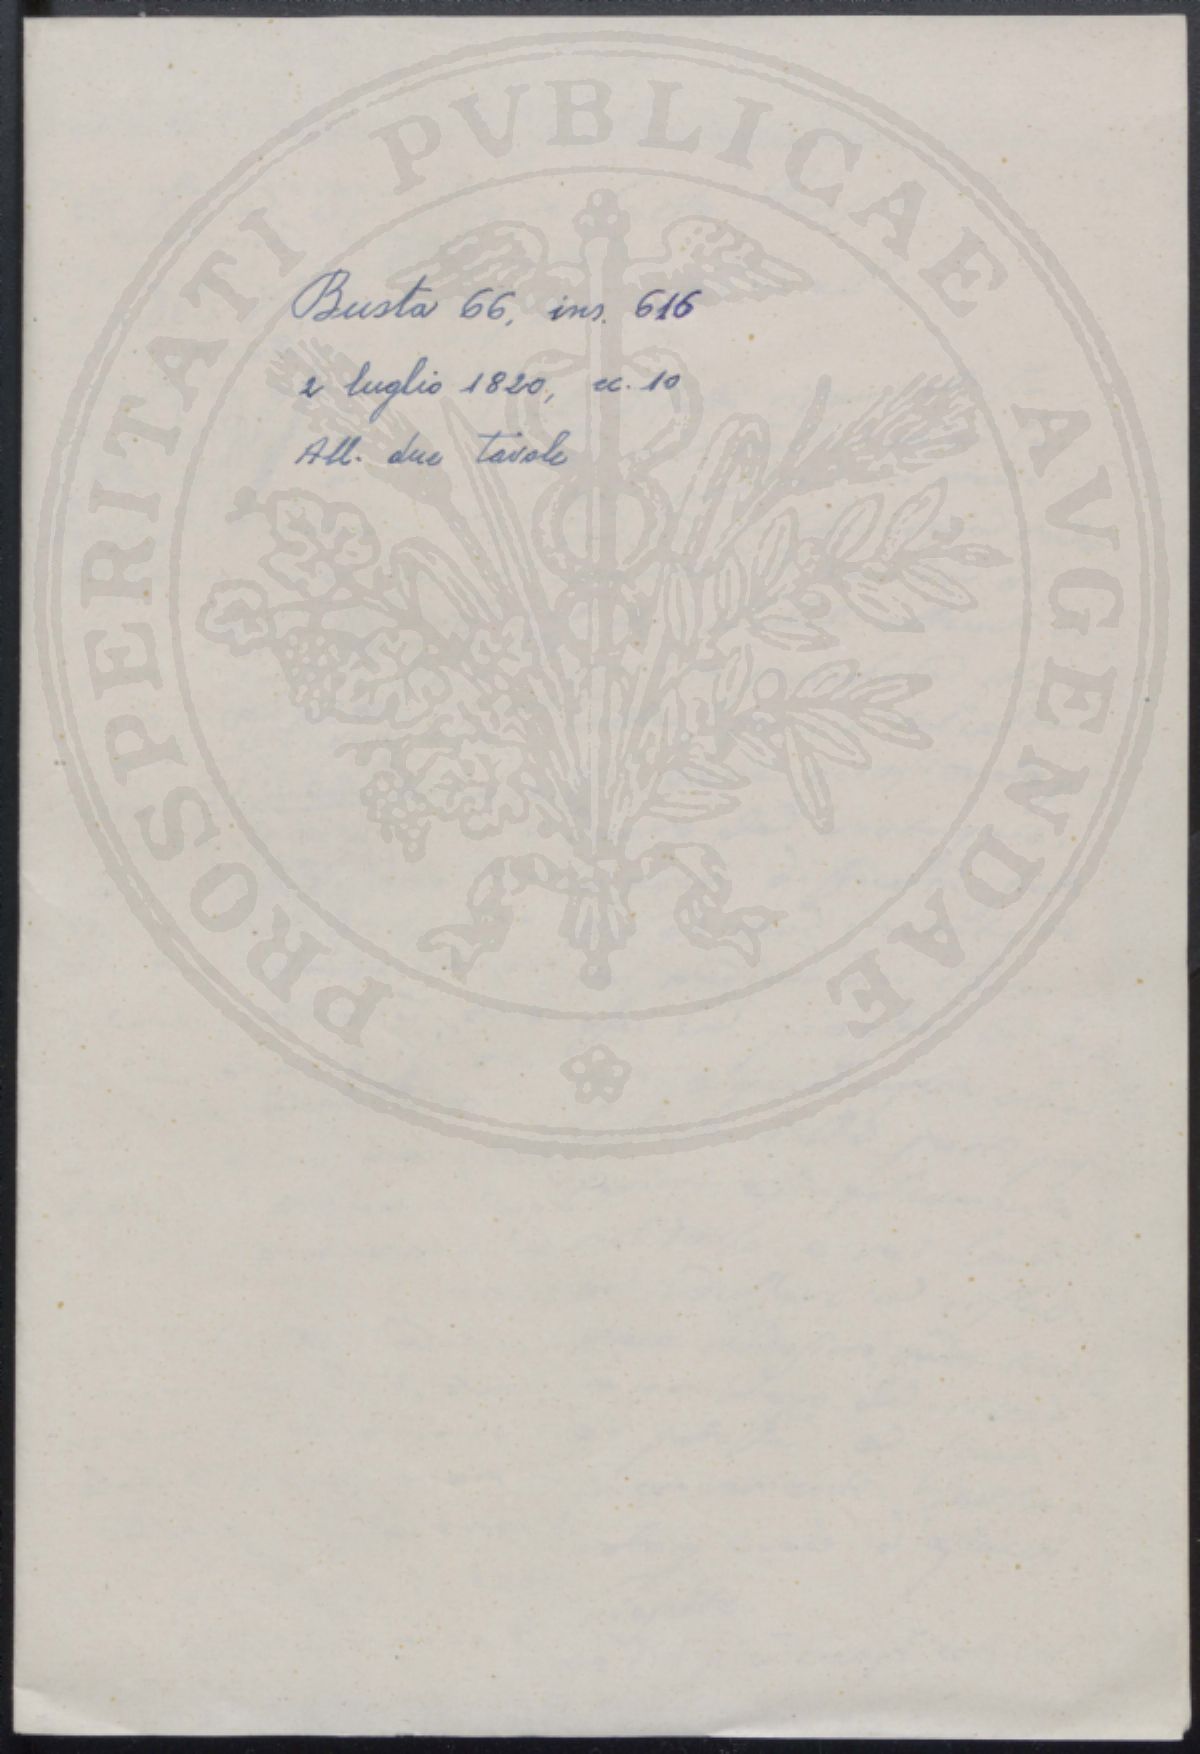 PROSPERITATI PVBLICAE AVGENDAE
Busta 66, ins. 616
2 luglio 1820, cc. 10
All. due tavole